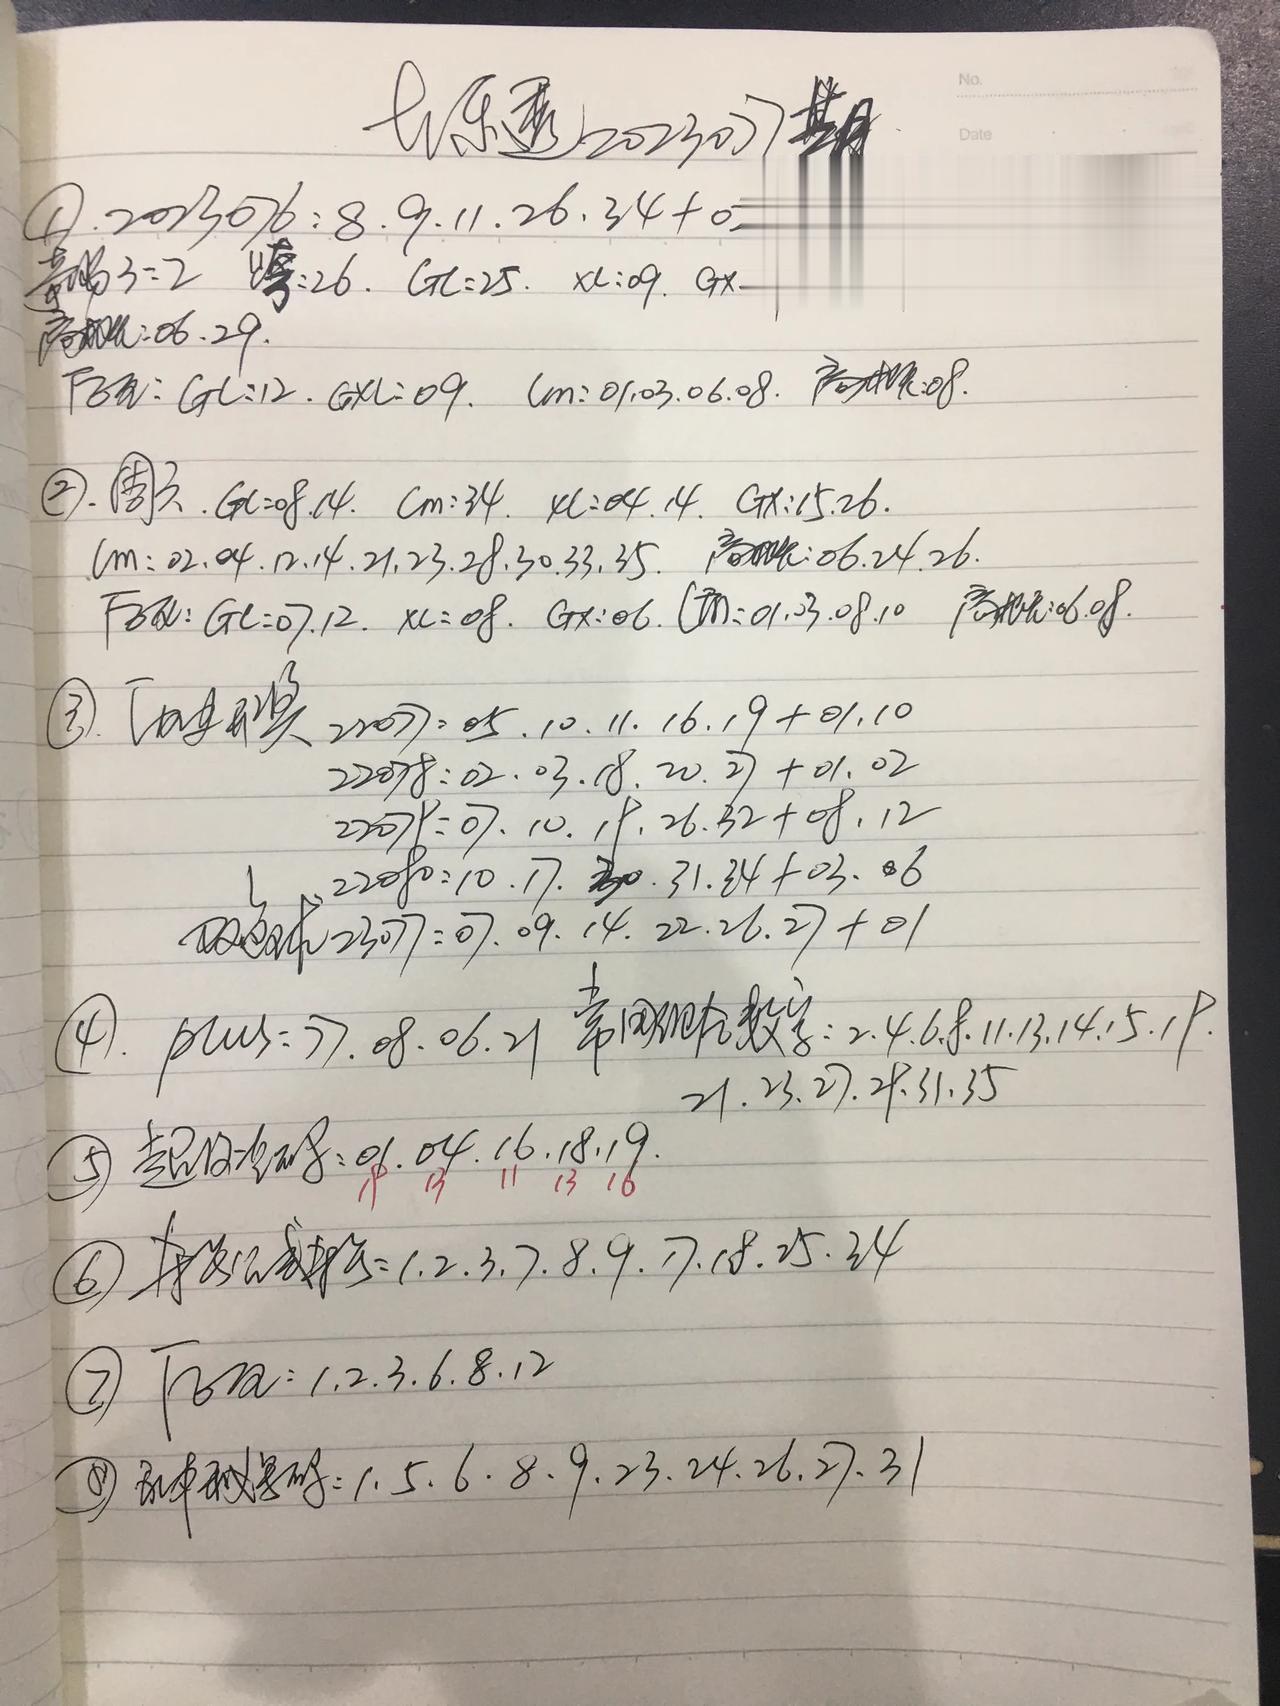 大乐透2023077期
No.
Date
① 2023076:8.9.11.26.34+0
奇码3=2 跨:26. GL=25. XL:09. GX
高概率:06.29.
下区:GL=12. GXL=09. Cm:01.03.06.08. 高概率:08.
②.周六.GL=08.14. Cm:34. XL=04.14. GX:15.26.
Cm:02.04.12.14.21.23.28.30.33.35. 高概率:06.24.26.
下区:GL=07.12. XL=08. GX:06. Cm=01.03.08.10 高概率:06.08.
③. 开奖 22077=05.10.11.16.19+01.10
22078=02.03.18.20.27+01.02
22079=07.10.19.26.32+08.12
22080=10.17.30.31.34+03.06
双色球23077=07.09.14.22.26.27+01
④. plus=77.08.06.21 数字:2.4.6.8.11.13.14.15.19.
21.23.27.29.31.35
⑤ 冷码:01.04.16.18.19.
19 13 11 13 16
⑥ =1.2.3.7.8.9.17.18.25.34
⑦ 下区:1.2.3.6.8.12
⑧ 码:1.5.6.8.9.23.24.26.27.31